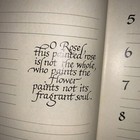 O Rose!
this painted rose
is not the whole
who paints the
flower
paints not its
fragrant soul.
5
6
7
8